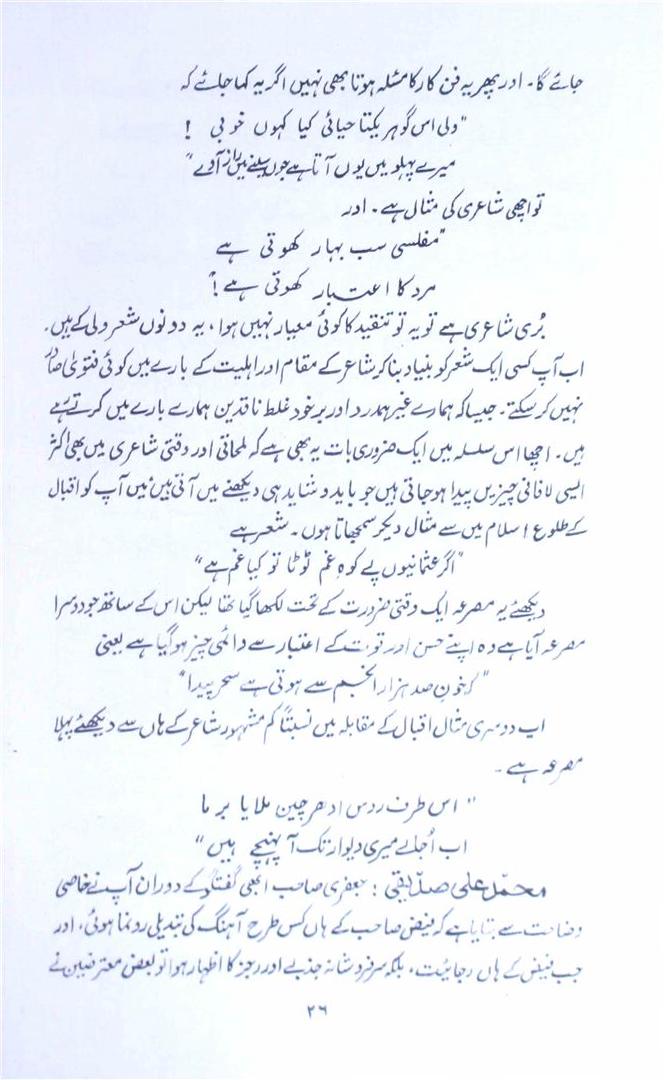 جائے گا۔ اور پھر یہ فن کار کا مسئلہ ہوتا بھی نہیں اگر یہ کہا جائے کہ
"ولی اس گوہر یکتا حیائی کیا کہوں خوبی !
میرے پہلو میں یوں آتا ہے جوں سینے میں راز آوے"
تو اچھی شاعری کی مثال ہے۔ اور
"مفلسی سب بہار کھوتی ہے
مرد کا اعتبار کھوتی ہے!"
بُری شاعری ہے تو یہ تو تنقید کا کوئی معیار نہیں ہوا، یہ دونوں شعر ولی کے ہیں۔
اب آپ کسی ایک شعر کو بنیاد بنا کر شاعر کے مقام اور اہلیت کے بارے میں کوئی فتویٰ صادر
نہیں کر سکتے۔ جیسا کہ ہمارے غیر ہمدرد اور بر خود غلط ناقدین ہمارے بارے میں کرتے رہے
ہیں۔ اچھا اس سلسلہ میں ایک ضروری بات یہ بھی ہے کہ لمحاتی اور وقتی شاعری میں بھی اکثر
ایسی لافانی چیزیں پیدا ہو جاتی ہیں جو باید و شاید ہی دیکھنے میں آتی ہیں میں آپ کو اقبال
کے طلوعِ اسلام میں سے مثال دیکر سمجھاتا ہوں۔ شعر ہے
"اگر عثمانیوں پے کوہِ غم ٹوٹا تو کیا غم ہے"
دیکھئے یہ مصرعہ ایک وقتی ضرورت کے تحت لکھا گیا تھا لیکن اس کے ساتھ جو دوسرا
مصرعہ آیا ہے وہ اپنے حسن اور قوت کے اعتبار سے دائمی چیز ہو گیا ہے یعنی
"کہ خونِ صد ہزار انجم سے ہوتی ہے سحر پیدا"
اب دوسری مثال اقبال کے مقابلہ میں نسبتاً کم مشہور شاعر کے ہاں سے دیکھئے پہلا
مصرعہ ہے۔
"اس طرف روس ادھر چین ملایا برما
اب اُجالے میری دیوار تک آ پہنچے ہیں"
محمد علی صدیقی : جعفری صاحب ابھی گفتگو کے دوران آپ نے خاصی
وضاحت سے بتایا ہے کہ فیض صاحب کے ہاں کس طرح آہنگ کی تبدیلی رونما ہوئی، اور
جب فیض کے ہاں رجائیت، بلکہ سرفروشانہ جذبے اور رجز کا اظہار ہوا تو بعض معترضین نے
۲۶